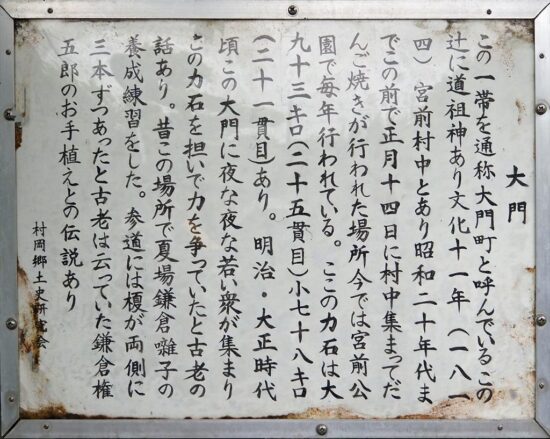 大門
この一帯を通称大門町と呼んでいるこの
辻に道祖神あり文化十一年(一八一
四)宮前村中とあり昭和二十年代ま
でこの前で正月十四日に村中集まってだ
んご焼きが行われた場所今では宮前公
園で毎年行われている。ここの力石は大
九十三キロ(二十五貫目)小七十八キロ
(二十一貫目)あり。明治・大正時代
頃この大門に夜な夜な若い衆が集まり
この力石を担いで力を争っていたと古老の
話あり。昔この場所で夏場鎌倉囃子の
養成練習をした。参道には榎が両側に
三本ずつあったと古老は云っていた鎌倉権
五郎のお手植えとの伝説あり
村岡郷土史研究会